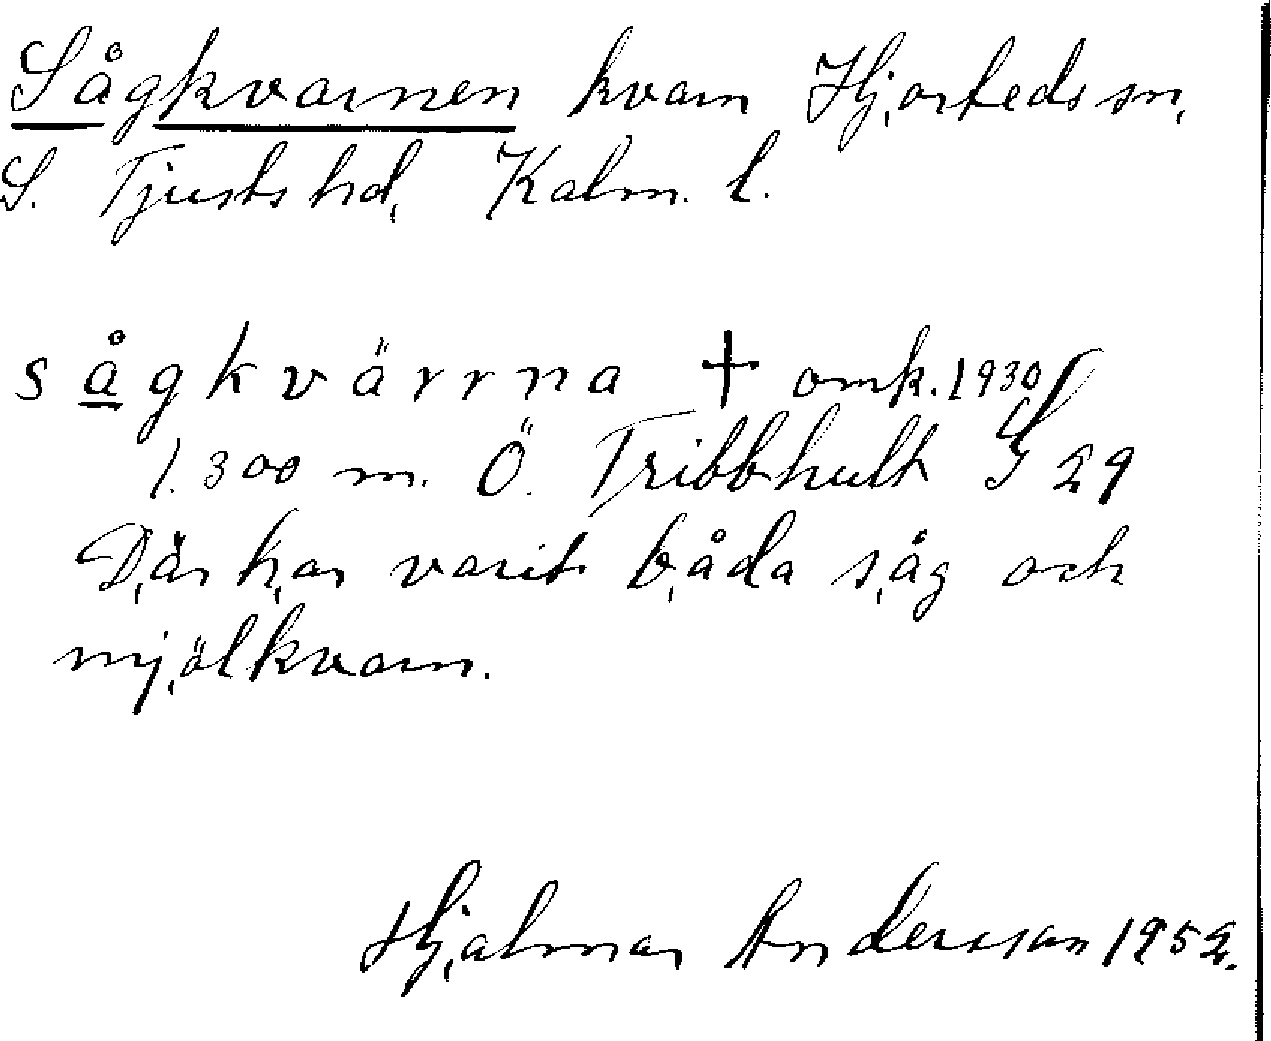 Sågkvarnen kvarn Hjorteds sn.
S. Tjusts hd. Kalm. l.
sågkvärrna † omk. 1930
1.300 m. Ö. Tribbhult S 29
Där har varit båda såg och
mjölkvarn.
Hjalmar Andersson 1952.